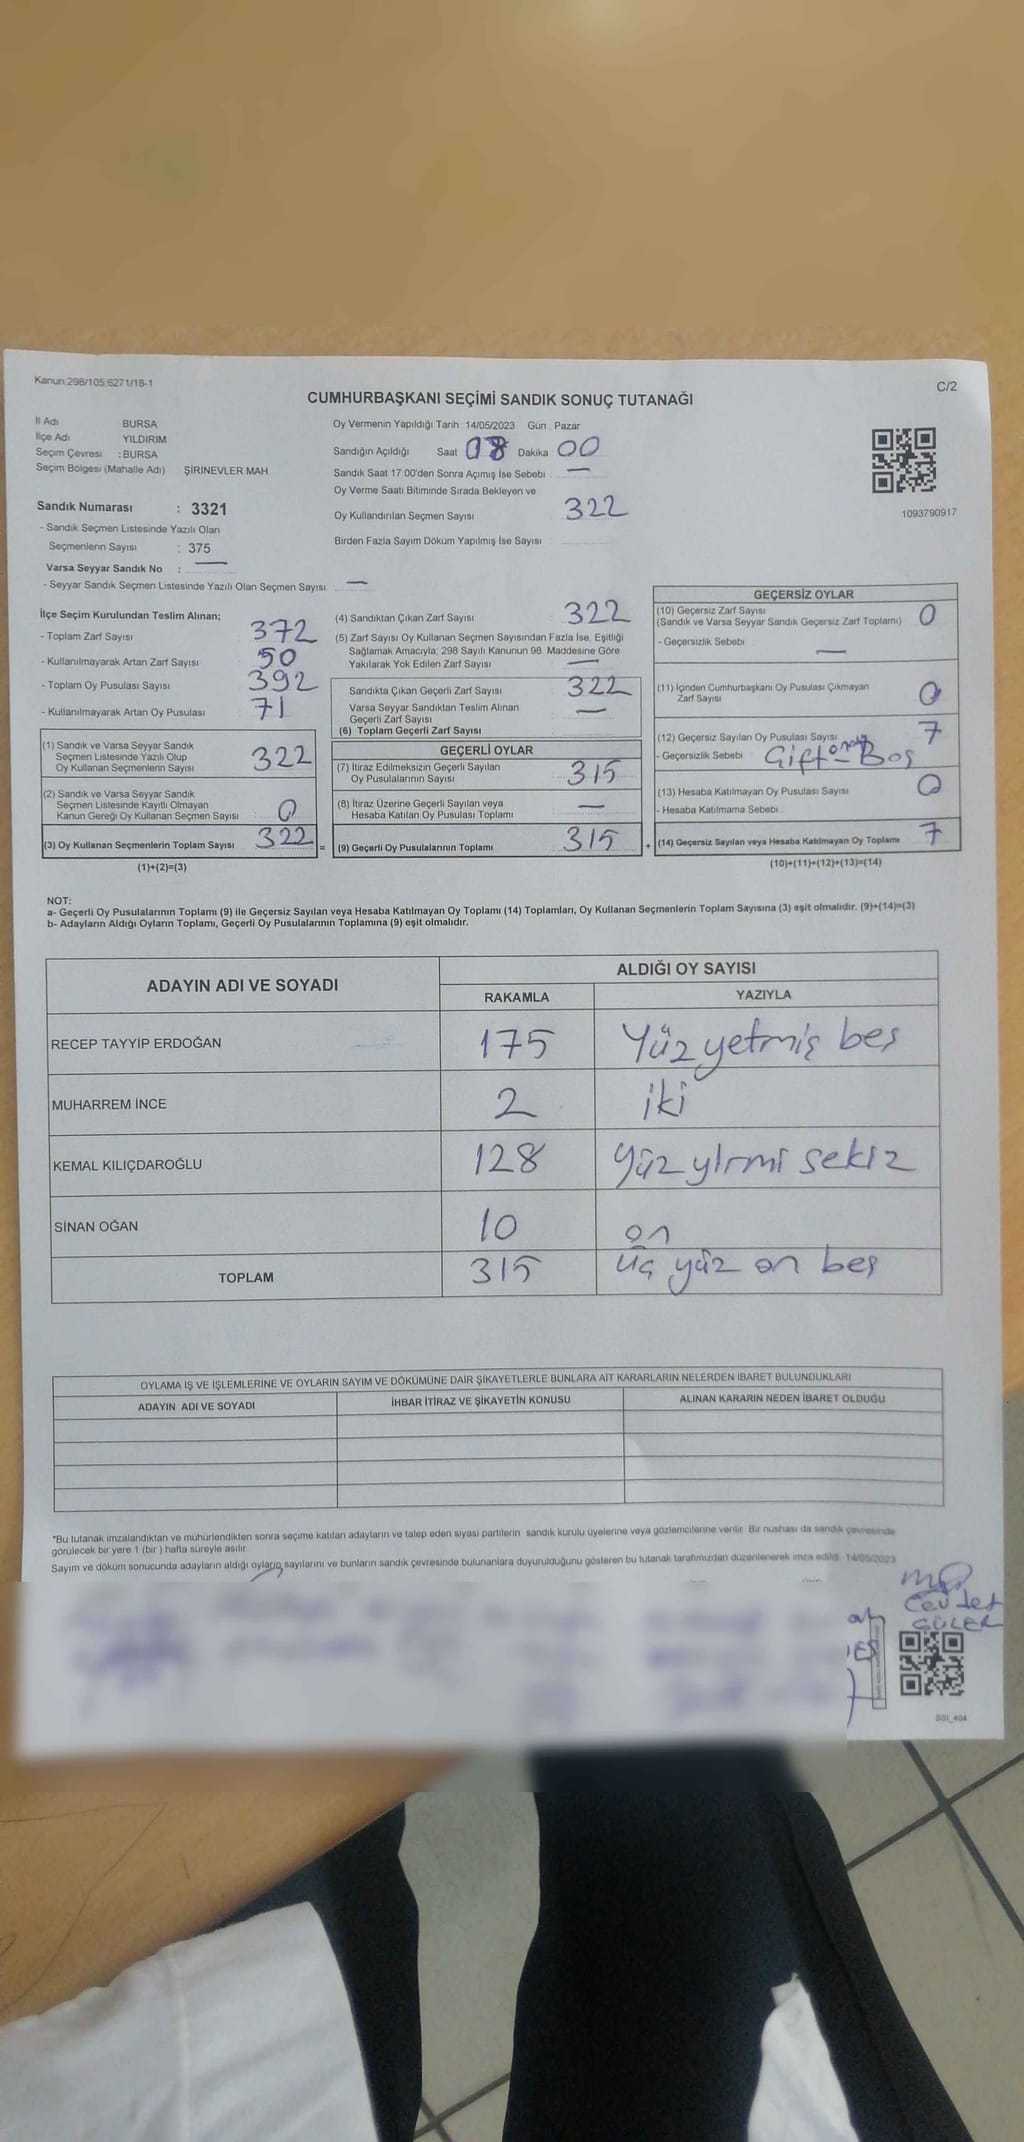 Kanun;298/105;6271/18-1
C/2
CUMHURBAŞKANI SEÇİMİ SANDIK SONUÇ TUTANAĞI
İl Adı BURSA
İlçe Adı YILDIRIM
Seçim Çevresi : BURSA
Seçim Bölgesi (Mahalle Adı) ŞİRİNEVLER MAH
Sandık Numarası : 3321
- Sandık Seçmen Listesinde Yazılı Olan
Seçmenlerin Sayısı : 375
Varsa Seyyar Sandık No : —
- Seyyar Sandık Seçmen Listesinde Yazılı Olan Seçmen Sayısı —
Oy Vermenin Yapıldığı Tarih 14/05/2023 Gün . Pazar
Sandığın Açıldığı Saat 08 Dakika 00
Sandık Saat 17:00'den Sonra Açımış İse Sebebi —
Oy Verme Saati Bitiminde Sırada Bekleyen ve
Oy Kullandırılan Seçmen Sayısı 322
Birden Fazla Sayım Döküm Yapılmış İse Sayısı
1093790917
İlçe Seçim Kurulundan Teslim Alınan;
- Toplam Zarf Sayısı 372
- Kullanılmayarak Artan Zarf Sayısı 50
- Toplam Oy Pusulası Sayısı 392
- Kullanılmayarak Artan Oy Pusulası 71
(1) Sandık ve Varsa Seyyar Sandık
Seçmen Listesinde Yazılı Olup
Oy Kullanan Seçmenlerin Sayısı 322
(2) Sandık ve Varsa Seyyar Sandık
Seçmen Listesinde Kayıtlı Olmayan
Kanun Gereği Oy Kullanan Seçmen Sayısı 0
(3) Oy Kullanan Seçmenlerin Toplam Sayısı 322 =
(1)+(2)=(3)
(4) Sandıktan Çıkan Zarf Sayısı 322
(5) Zarf Sayısı Oy Kullanan Seçmen Sayısından Fazla İse, Eşitliği
Sağlamak Amacıyla, 298 Sayılı Kanunun 98. Maddesine Göre
Yakılarak Yok Edilen Zarf Sayısı —
Sandıkta Çıkan Geçerli Zarf Sayısı 322
Varsa Seyyar Sandıktan Teslim Alınan
Geçerli Zarf Sayısı —
(6) Toplam Geçerli Zarf Sayısı
GEÇERLİ OYLAR
(7) İtiraz Edilmeksizin Geçerli Sayılan
Oy Pusulalarının Sayısı 315
(8) İtiraz Üzerine Geçerli Sayılan veya
Hesaba Katılan Oy Pusulası Toplamı —
(9) Geçerli Oy Pusulalarının Toplamı 315 +
GEÇERSİZ OYLAR
(10) Geçersiz Zarf Sayısı
(Sandık ve Varsa Seyyar Sandık Geçersiz Zarf Toplamı) 0
- Geçersizlik Sebebi —
(11) İçinden Cumhurbaşkanı Oy Pusulası Çıkmayan
Zarf Sayısı 0
(12) Geçersiz Sayılan Oy Pusulası Sayısı 7
- Geçersizlik Sebebi Çift Boş
(13) Hesaba Katılmayan Oy Pusulası Sayısı 0
- Hesaba Katılmama Sebebi :
(14) Geçersiz Sayılan veya Hesaba Katılmayan Oy Toplamı 7
(10)+(11)+(12)+(13)=(14)
NOT:
a- Geçerli Oy Pusulalarının Toplamı (9) ile Geçersiz Sayılan veya Hesaba Katılmayan Oy Toplamı (14) Toplamları, Oy Kullanan Seçmenlerin Toplam Sayısına (3) eşit olmalıdır. (9)+(14)=(3)
b- Adayların Aldığı Oyların Toplamı, Geçerli Oy Pusulalarının Toplamına (9) eşit olmalıdır.
ADAYIN ADI VE SOYADI ALDIĞI OY SAYISI
RAKAMLA YAZIYLA
RECEP TAYYİP ERDOĞAN 175 Yüz yetmiş beş
MUHARREM İNCE 2 iki
KEMAL KILIÇDAROĞLU 128 yüz yirmi sekiz
SİNAN OĞAN 10 on
TOPLAM 315 üç yüz on beş
OYLAMA İŞ VE İŞLEMLERİNE VE OYLARIN SAYIM VE DÖKÜMÜNE DAİR ŞİKAYETLERLE BUNLARA AİT KARARLARIN NELERDEN İBARET BULUNDUKLARI
ADAYIN ADI VE SOYADI İHBAR İTİRAZ VE ŞİKAYETİN KONUSU ALINAN KARARIN NEDEN İBARET OLDUĞU
*Bu tutanak imzalandıktan ve mühürlendikten sonra seçime katılan adayların ve talep eden siyasi partilerin sandık kurulu üyelerine veya gözlemcilerine verilir. Bir nüshası da sandık çevresinde
görülecek bir yere 1 (bir ) hafta süreyle asılır
Sayım ve döküm sonucunda adayların aldığı oyların sayılarını ve bunların sandık çevresinde bulunanlara duyurulduğunu gösteren bu tutanak tarafımızdan düzenlenerek imza edildi. 14/05/2023
Cevdet
GÜLER
SSI_404